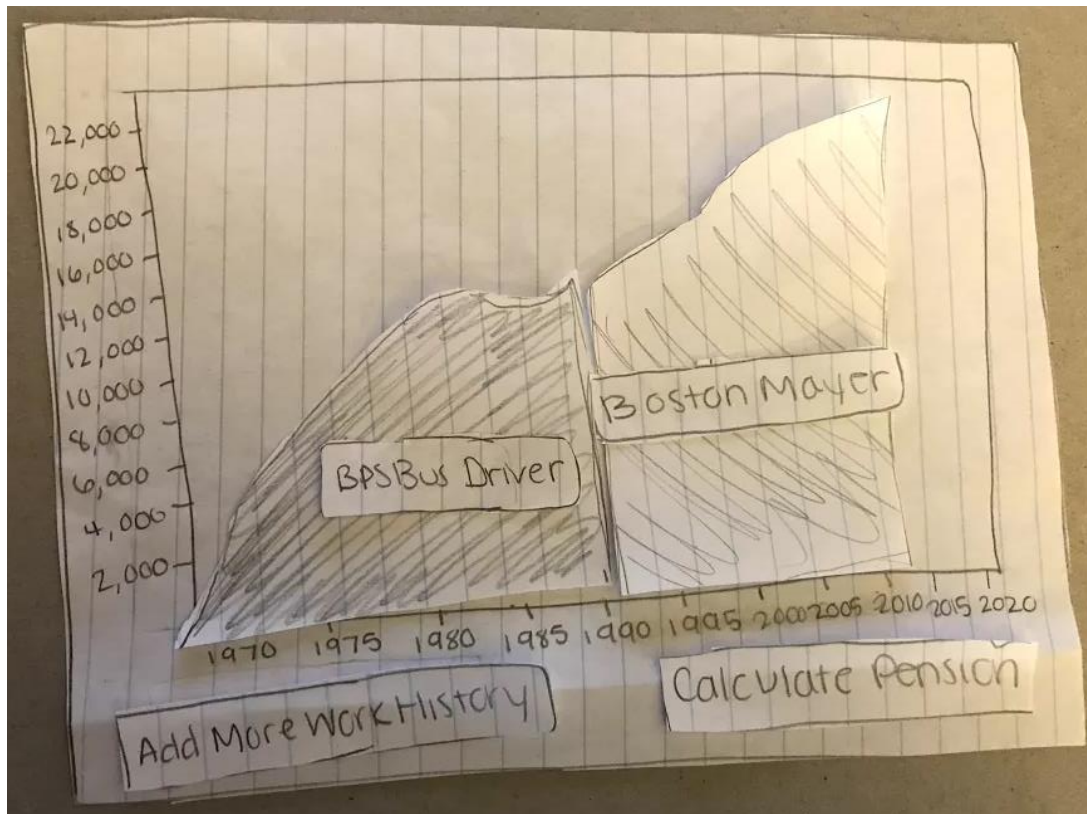 22,000
20,000
18,000
16,000
14,000
12,000
10,000
8,000
6,000
4,000
2,000
Boston Mayer
BPS Bus Driver
1970 1975 1980 1985 1990 1995 2000 2005 2010 2015 2020
Add More Work History
Calculate Pension